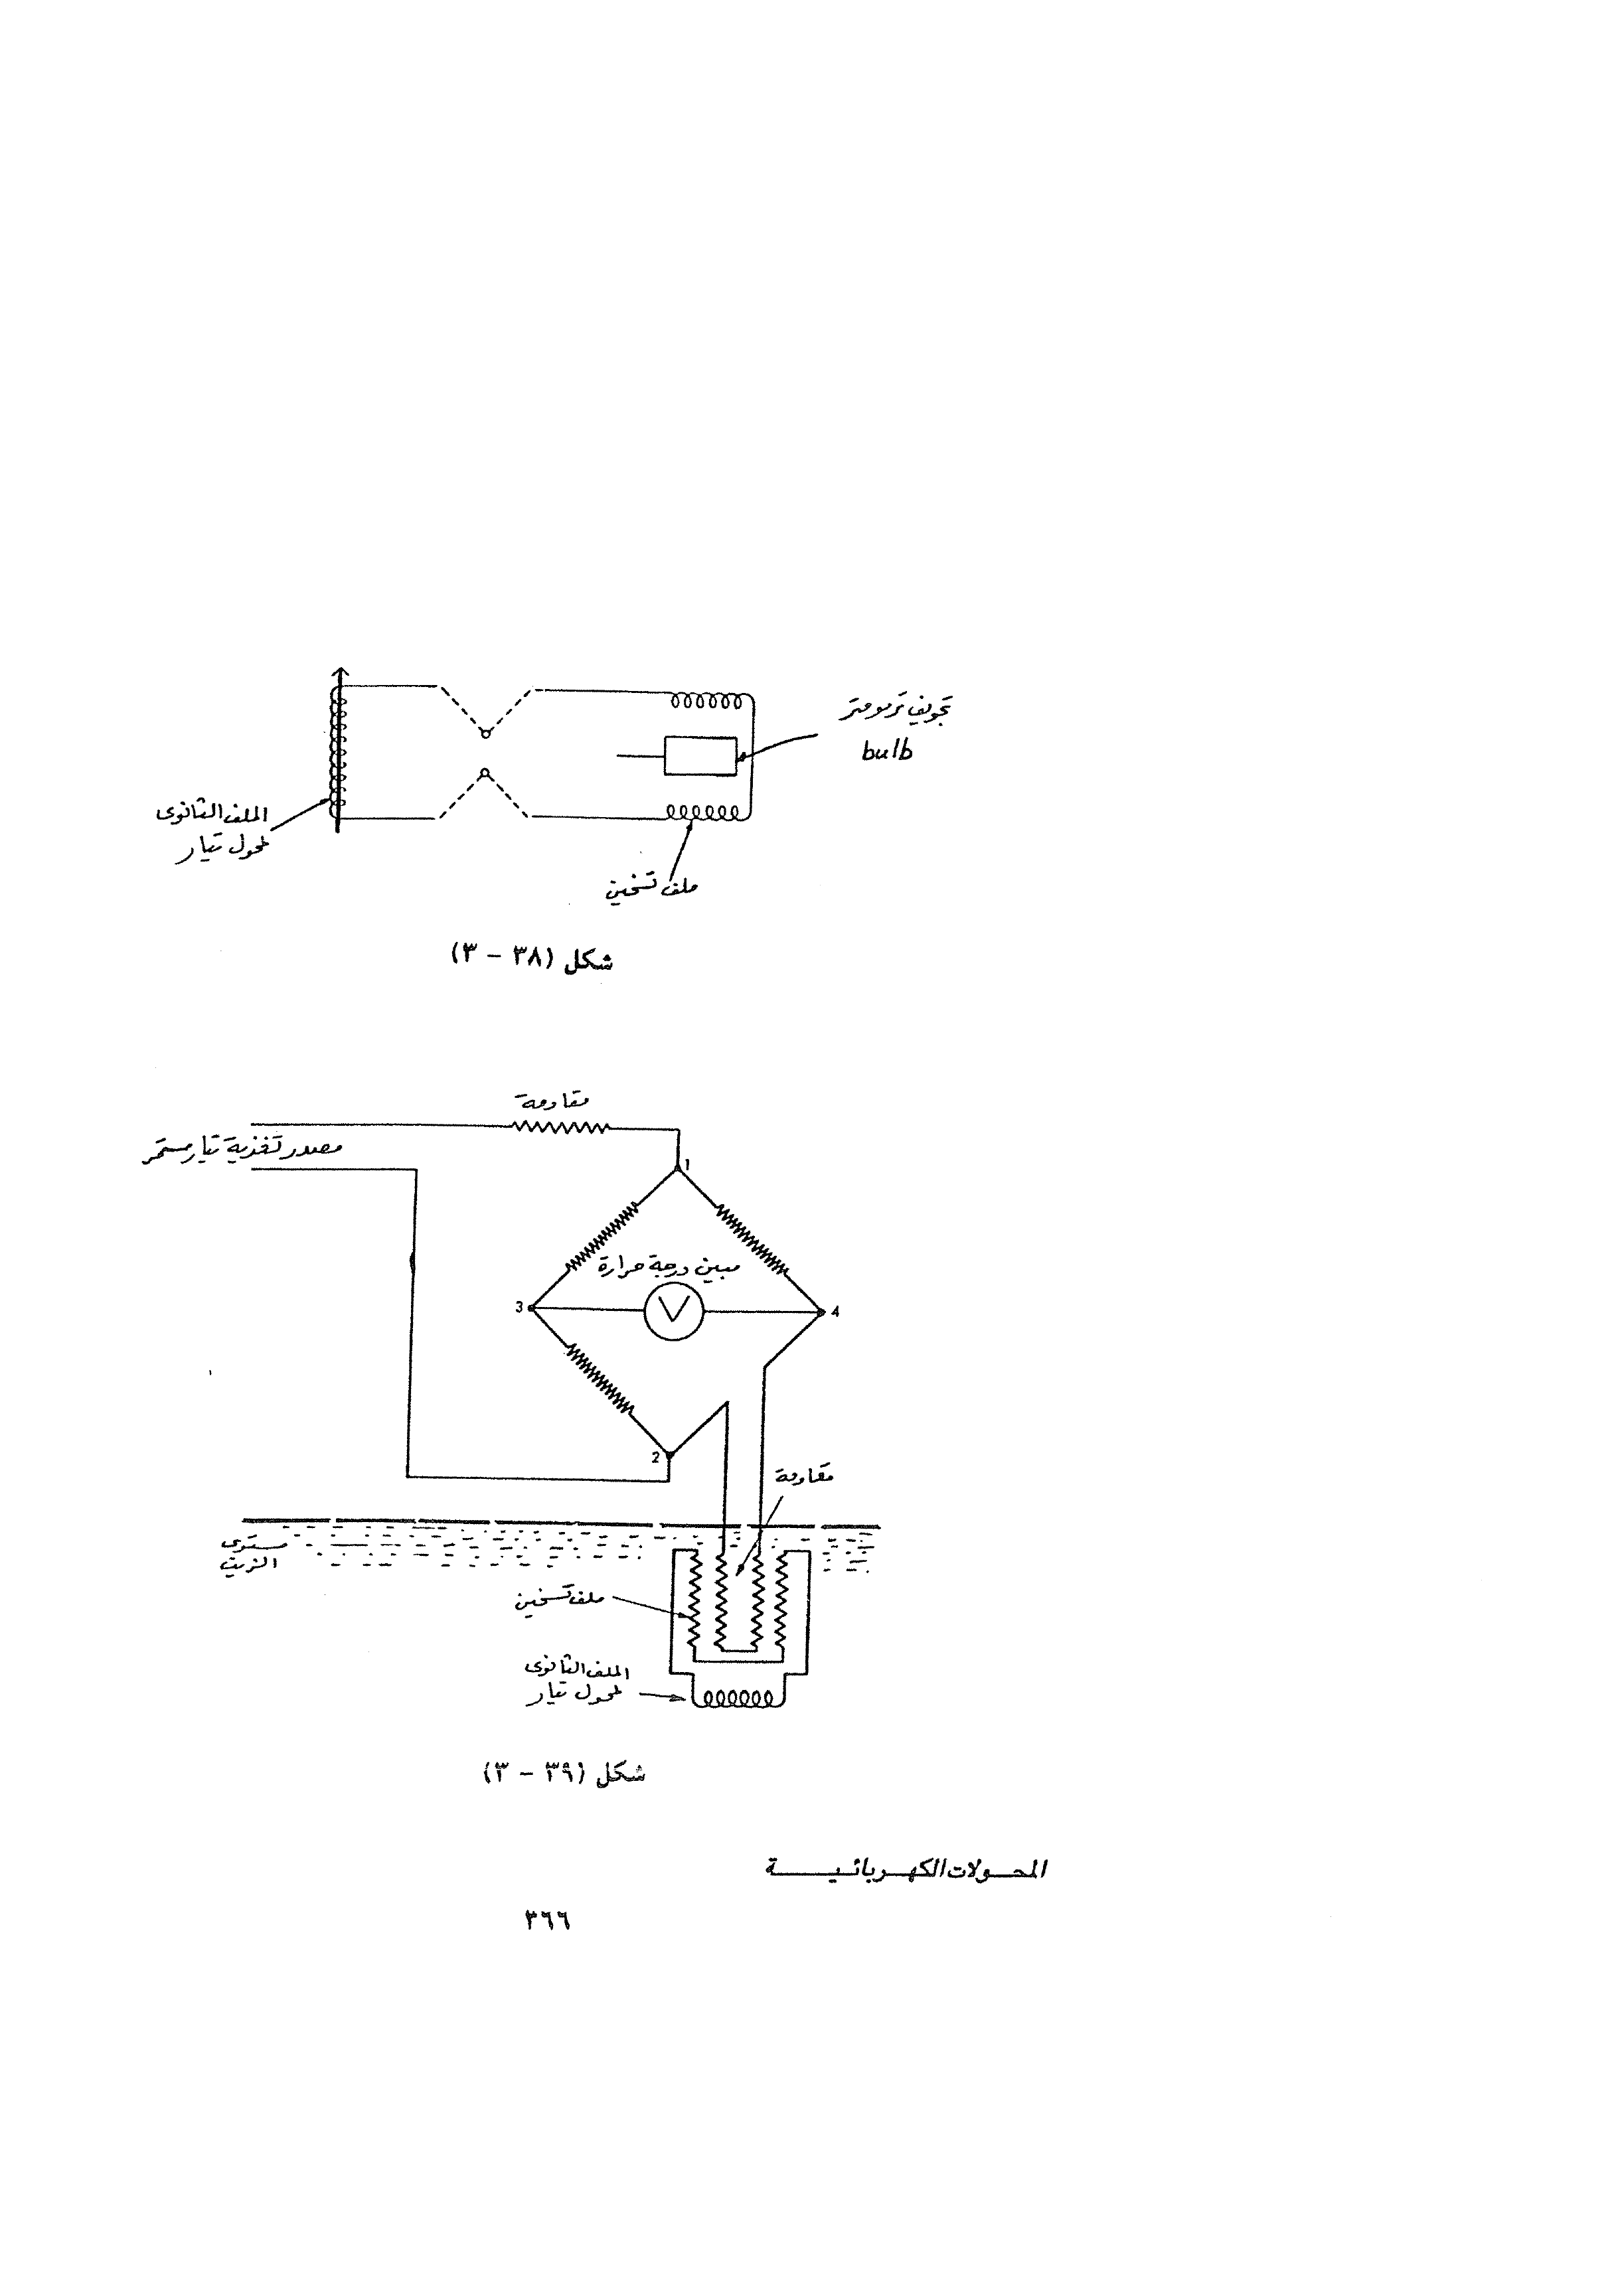 تجويف ترمومتر
bulb
الملف الثانوى
لمحول تيار
ملف تسخين
شكل (٣٨ – ٣)
مقاومة
مصدر تغذية تيار مستمر
1
مبين درجة حرارة
3
V
4
2
مقاومة
مستوى
الزيت
ملف تسخين
الملف الثانوى
لمحول تيار
شكل (٣٩ – ٣)
المحولات الكهربائية
٣٦٦